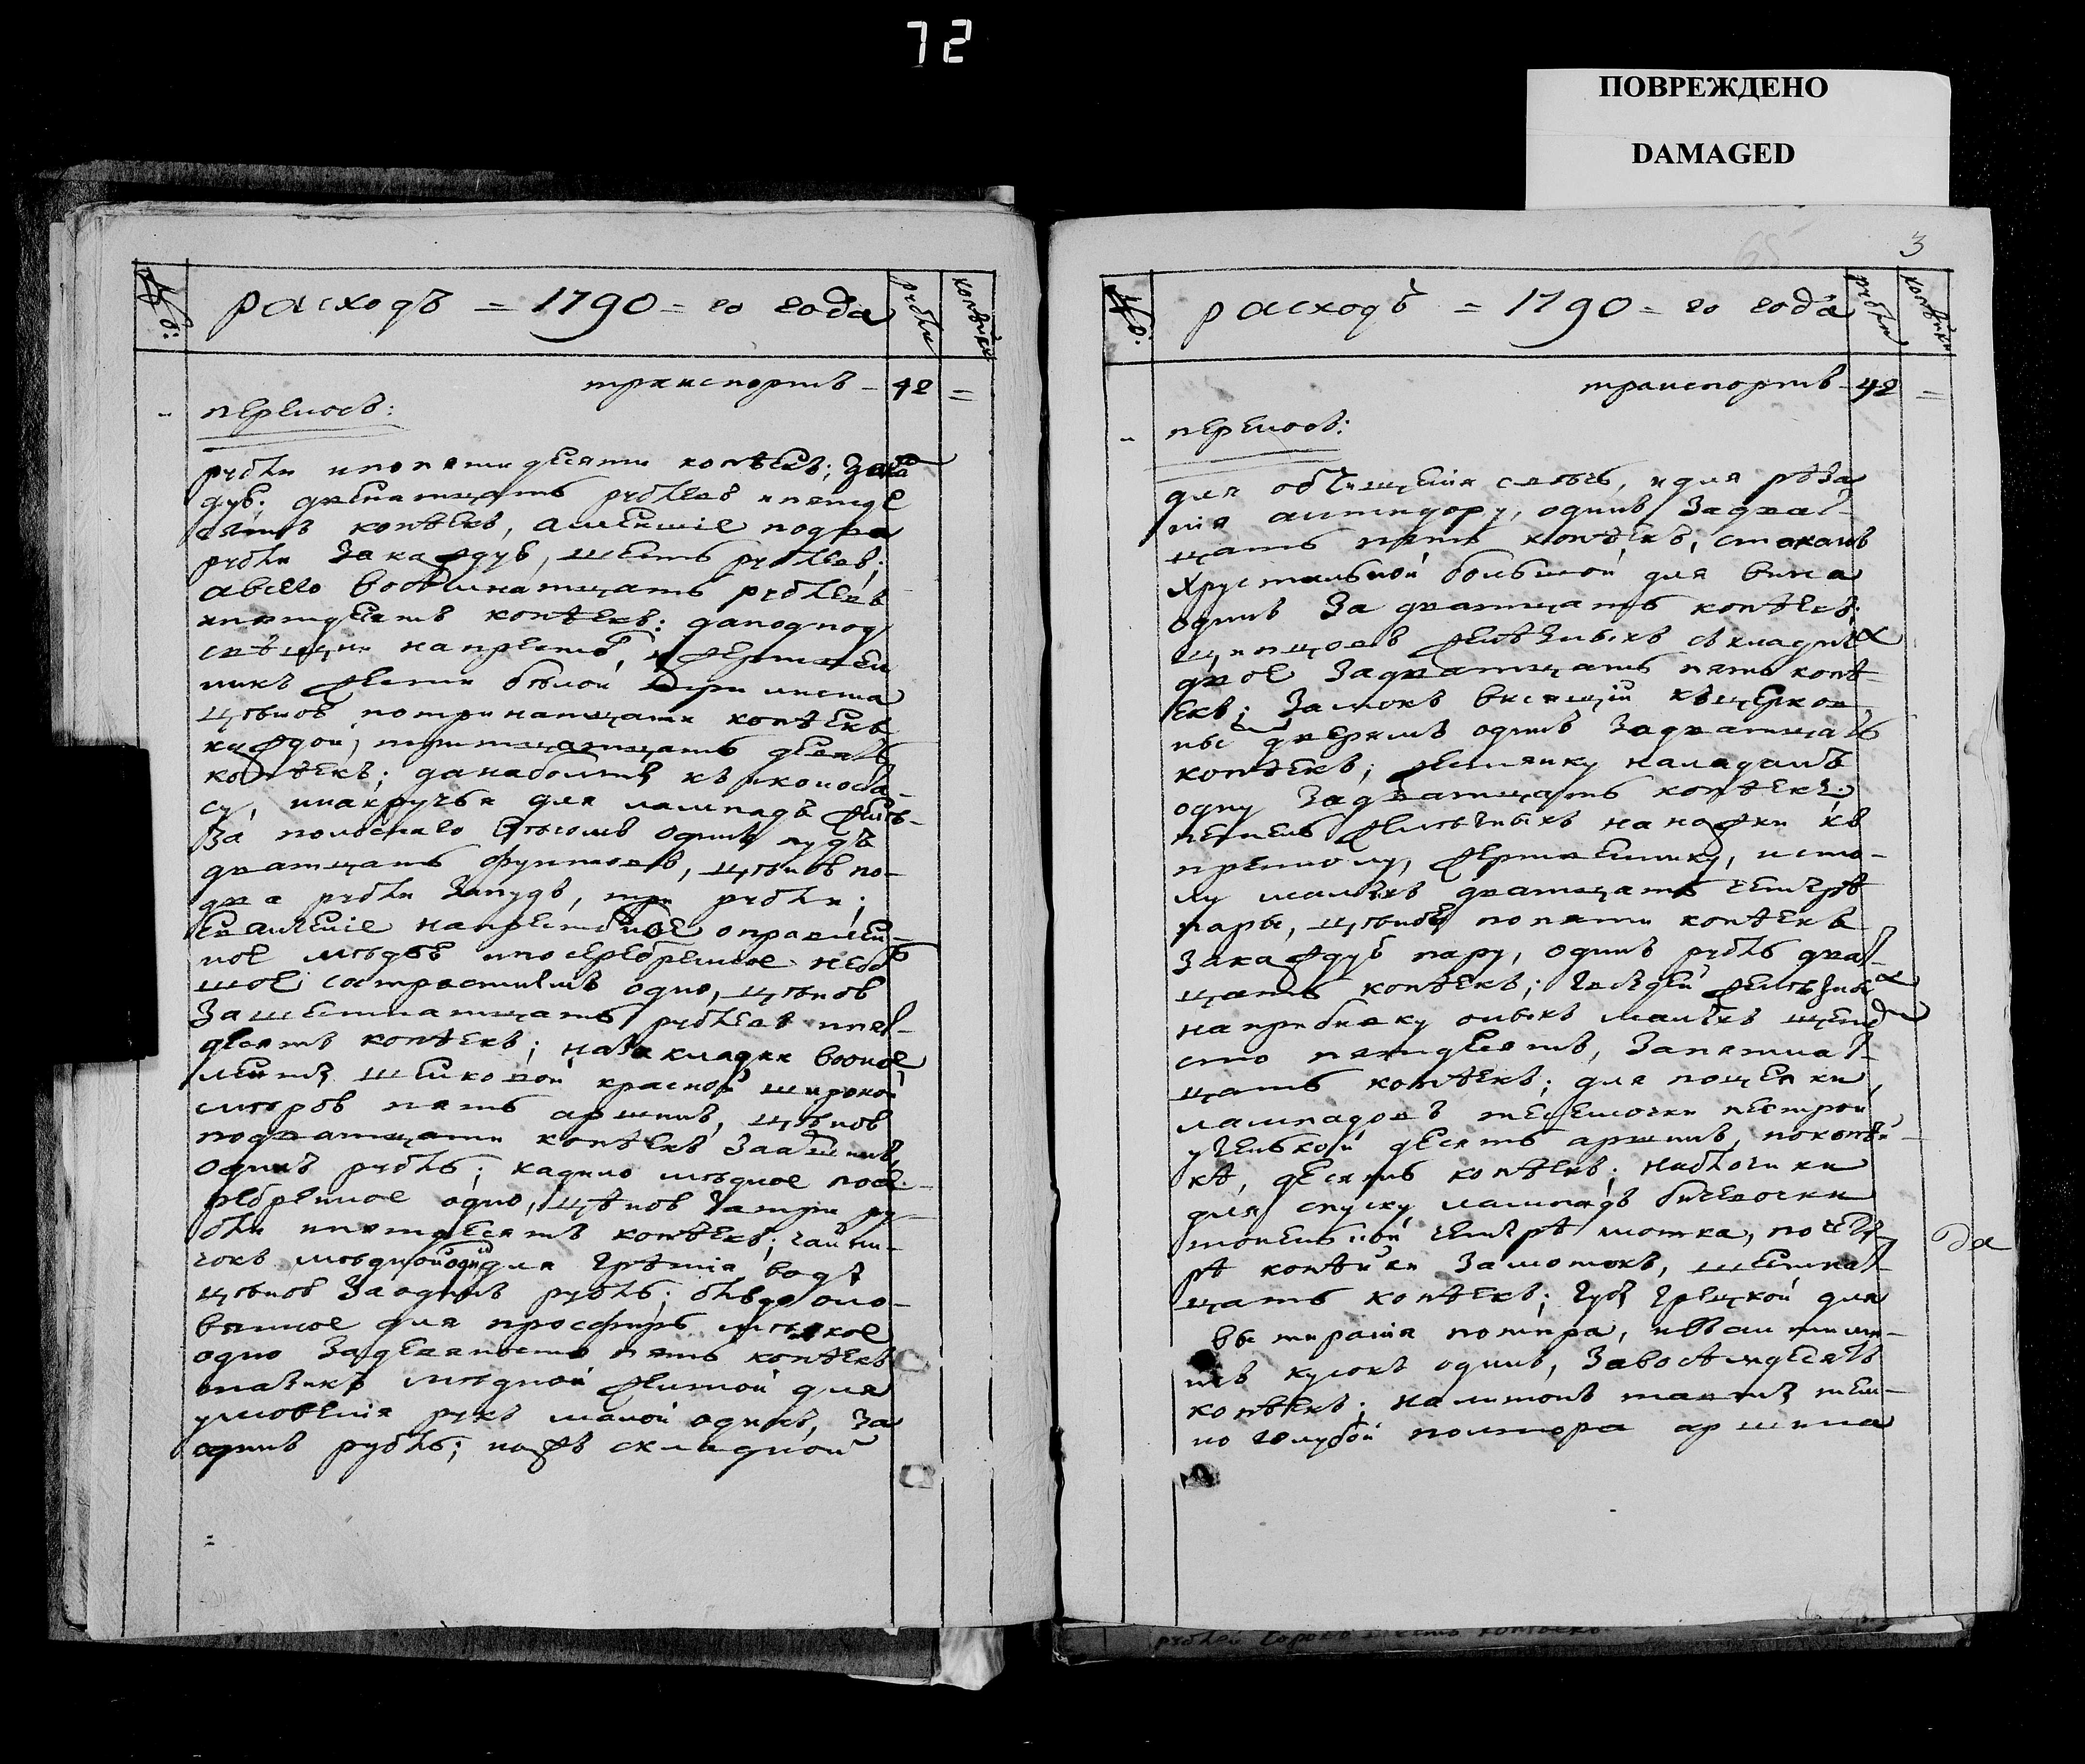 72
ПОВРЕЖДЕНО
DAMAGED
№:
расходъ = 1790 = го года
рубли
копѣйки
транспортъ - 42 =
переносъ:
рубли ипопяти десяти копѣекъ; зака
ждуб; двенатцать рублевъ ипятде
сятъ копѣекъ, аменшие подва
рубли закаждуб, шесть рублевъ;
авсего восѣмнатцать рублевъ
ипятдесятъ копѣекъ: данодпод
свѣщни напрестоб, ижертвен
никъ жести бѣлой три листа
цѣною потринатцати копѣекъ
каждой, тритцать девять
копѣекъ; данаболты къиконоста
су, инакручья для лампадъ желѣ-
за полоснаго вѣсомъ одинъ пудъ
дватцать фунтовъ, цѣною по-
два рубли запудъ, три рубли;
Евангелие напрестолное оправлен
ное мѣдью ипосеребреное небол
шое сострастми одно, цѣною
зашестнатцать рублевъ ипят-
десятъ копѣекъ; назакладки вооное
ленты шелковой красной широкой
пять аршинъ, цѣною
подватцати копѣекъ зааршинъ,
одинъ рубль; кадило мѣдное посе-
ребреное одно, цѣною затри ру-
бли ипятдесятъ копѣекъ; чайни-
чокъ мѣдной одинъ для грѣния воды
цѣною заодинъ рубль; блюдо оло-
вянное для просфиръ мѣлкое
одно задевяносто пять копѣекъ
тазикъ мѣдной желтой для
умовения рукъ малой одинъ, за
одинъ рубль; ножъ складной
65
3
№:
расходъ = 1790 = го года
рубли
копѣйки
транспортъ - 42 =
переносъ:
для обчищения свѣчь, идля рѣза
ния антидору, одинъ задват-
цать пять копѣекъ; стаканъ
хрустальной большой для вина
одинъ за дватцать копѣекъ;
щипцовъ желѣзныхъ складныхъ
двое задватцать пять копѣ-
екъ; замокъ висящий къцерков
ны дверямъ одинъ задватцать
копѣекъ; жестянку наладанъ
одну задватцать копѣекъ;
петель желѣзныхъ наножки къ
престолу, жертвеннику, исто-
лу малыхъ дватцать четырѣ
пары, цѣною попяти копѣекъ
закаждуб пару, одинъ рубль дват-
цать копѣекъ; гвоздей желѣзныхъ
наприбивку оныхъ малыхъ щетомъ
сто пятдесятъ, запятнат-
цать копѣекъ; для пощепки
лампадовъ тесемочки пестрой
узенькой десять аршинъ, покопѣй-
кѣ, десять копѣекъ; наблочики
для спуску лампадъ бичевочки
тоненькой четырѣ мотка, почеты-
рѣ копѣйки замотокъ, шестнат-
цать копѣекъ; губы грецкой для
вытирания потира, ивъантими-
нсъ кусокъ одинъ, завосѣмдесятъ
копѣекъ; налитонъ тафты тем-
но голубой полтора аршина
да
рублей сорокъ копѣекъ